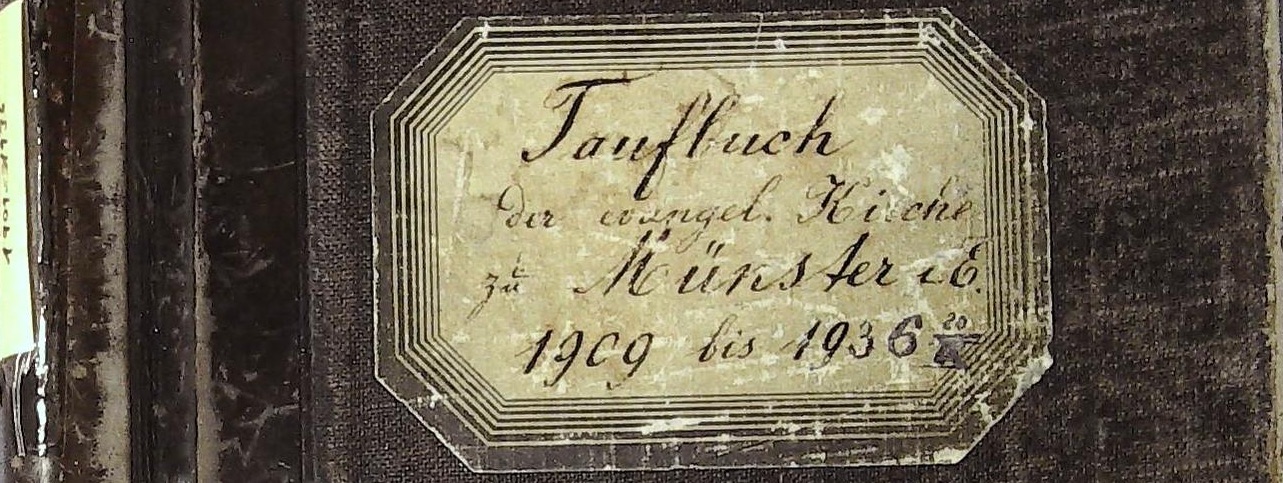 Taufbuch
der evangel. Kirche
zu Münster i. E.
1909 bis 1936 20